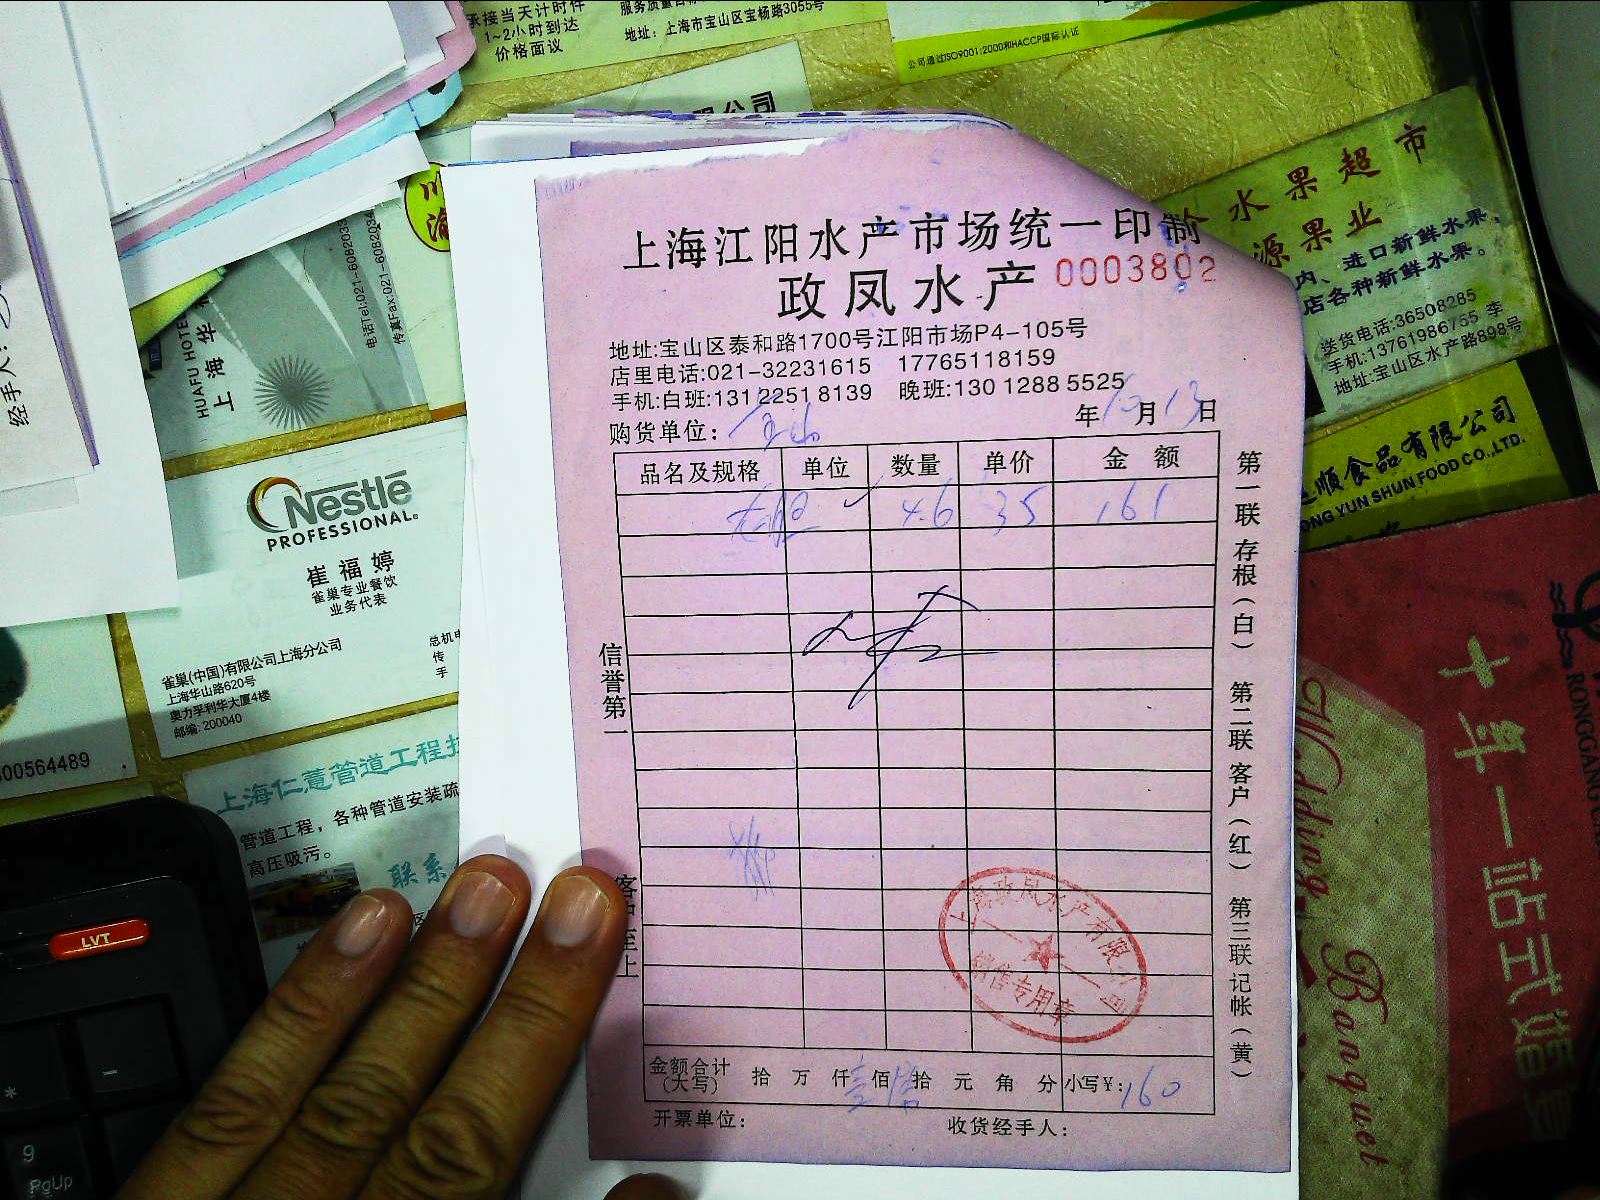 承接当天计时件
1~2小时到达
价格面议
地址：上海市宝山区宝杨路3055号
公司通过ISO9001:2000和HACCP国际认证
限公司
水果超市
源果业
内、进口新鲜水果，
店各种新鲜水果。
送货电话:36508285
手机:13761986755 李
地址:宝山区水产路898号
顺食品有限公司
ONG YUN SHUN FOOD CO.,LTD.
上海江阳水产市场统一印制
政凤水产 0003802
地址:宝山区泰和路1700号江阳市场P4-105号
店里电话:021-32231615 17765118159
手机:白班:131 2251 8139 晚班:130 1288 5525
购货单位: 年10月13日
品名及规格 单位 数量 单价 金额
4.6 35 161
信誉第一
客户至上
第一联存根(白) 第二联客户(红) 第三联记帐(黄)
上海政凤水产有限公司
销售专用章
金额合计(大写) 拾 万 仟 壹佰 拾 元 角 分 小写¥: 160
开票单位: 收货经手人:
经手人:
HUAFU HOTE
上海华
电话Tel:021-6082033
传真Fax:021-6082034
Nestlé
PROFESSIONAL®
崔福婷
雀巢专业餐饮
业务代表
雀巢(中国)有限公司上海分公司
上海华山路620号
奥力孚利华大厦4楼
邮编: 200040
总机电
传
手
00564489
上海仁薏管道工程技
管道工程，各种管道安装疏
高压吸污。
联系
LVT
*
-
9
PgUp
Wedding Banquet
十年一站式婚宴
RONGGANG